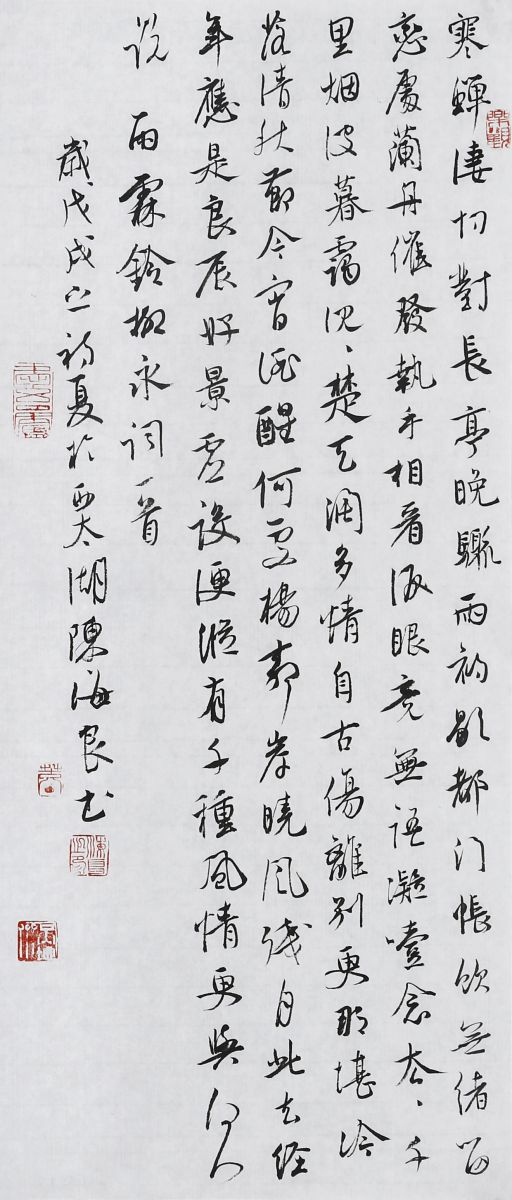 寒蟬淒切對長亭晚驟雨初歇都門帳飲無緒留
戀處蘭舟催發執手相看淚眼竟無語凝噎念去、千
里烟波暮靄沉、楚天闊多情自古傷離別更那堪冷
落清秋節今宵酒醒何處楊柳岸曉風殘月此去經
年應是良辰好景虛設便縱有千種風情更與何人
說 雨霖鈴柳永詞一首
歲戊戌之初夏於西太湖陳海良書